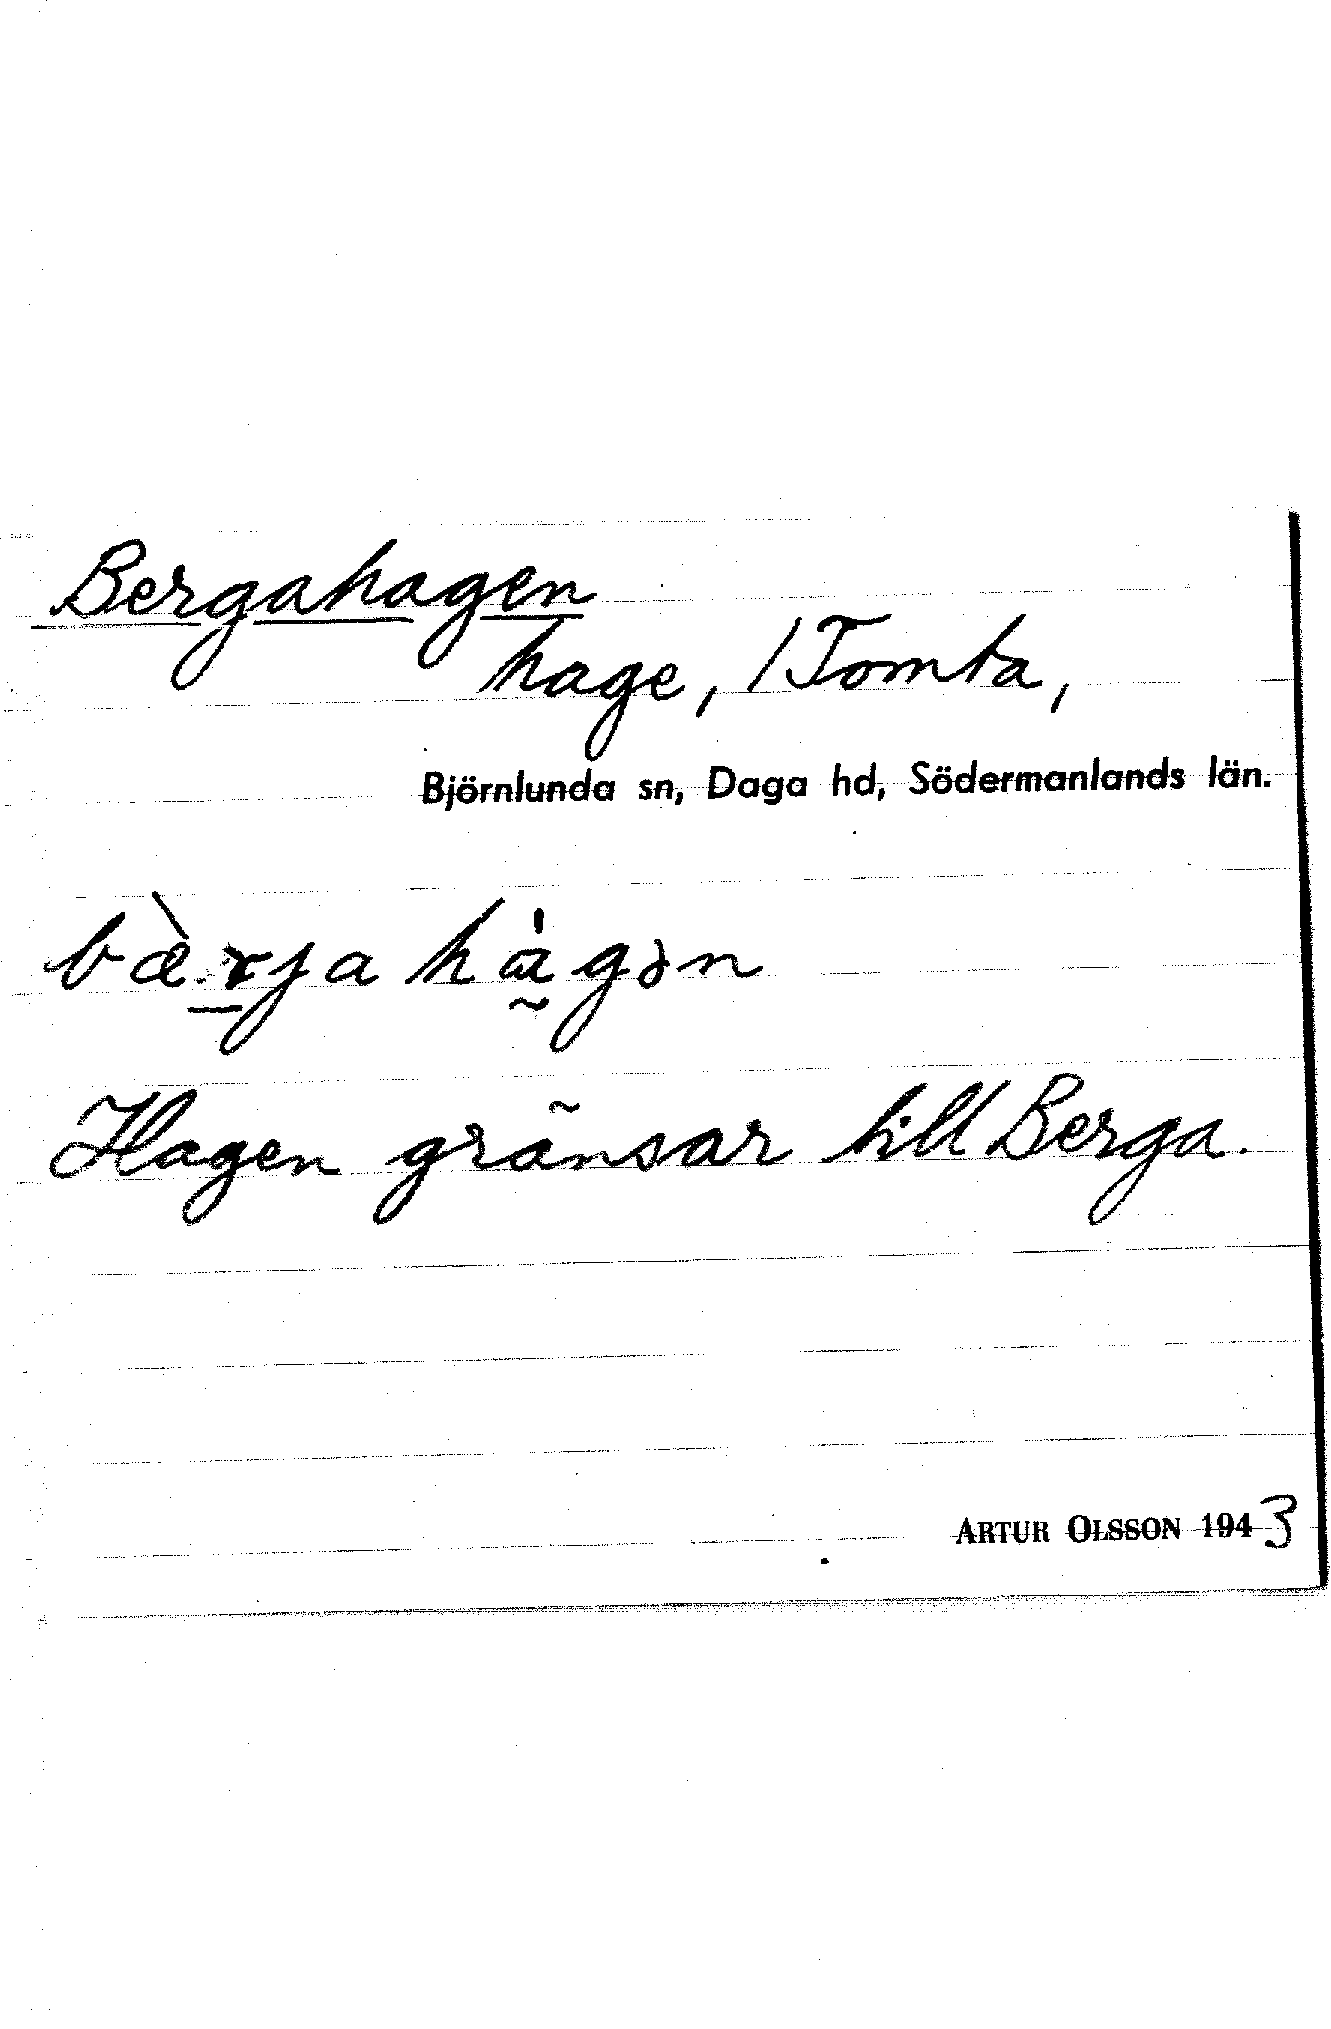 Bergahagen
hage, 1 Tomta,
Björnlunda sn, Daga hd, Södermanlands län.
bæ̀rja hàgən
Hagen gränsar till Berga.
ARTUR OLSSON 1943